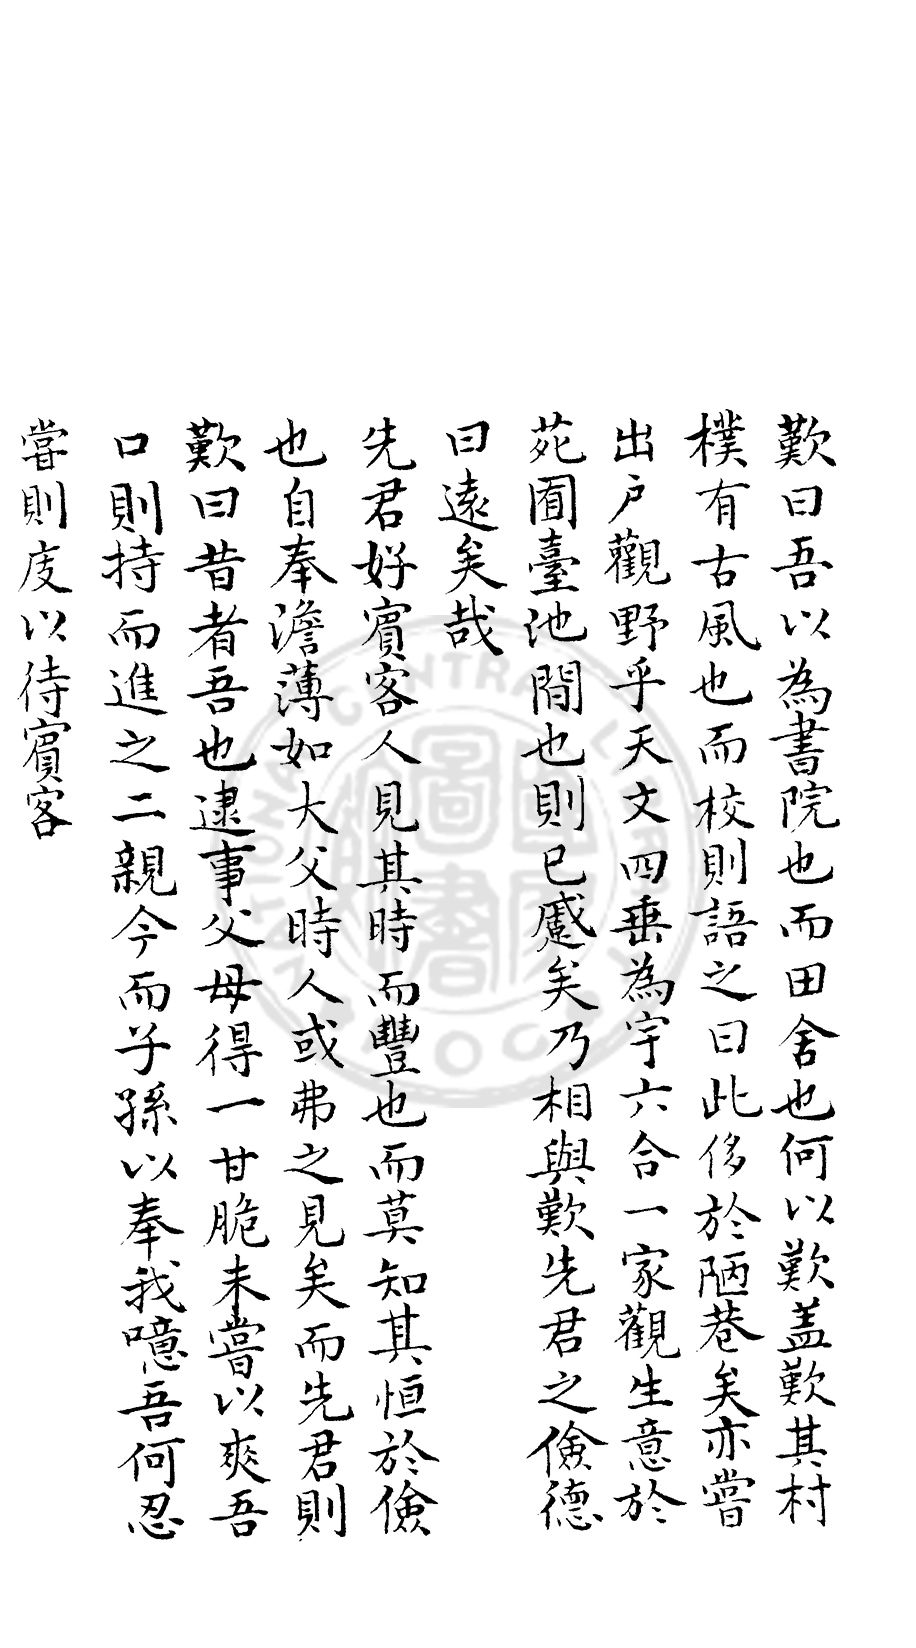 歎曰吾以為書院也而田舍也何以歎盖歎其村
樸有古風也而校則語之曰此侈於陋巷矣亦嘗
出户觀野乎天文四垂為宇六合一家觀生意於
苑囿臺池間也則已蹙矣乃相與歎先君之儉德
曰遠矣哉
先君好賓客人見其時而豐也而莫知其恒於儉
也自奉澹薄如大父時人或弗之見矣而先君則
歎曰昔者吾也逮事父母得一甘脆未嘗以爽吾
口則持而進之二親今而子孫以奉我噫吾何忍
嘗則庋以待賓客
NATIONAL CENTRAL LIBRARY
國家圖書館